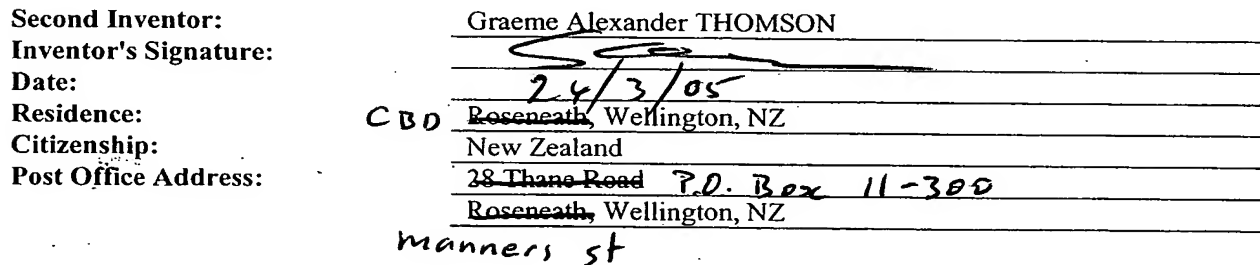 Second Inventor: Graeme Alexander THOMSON
Inventor's Signature:
Date: 24/3/05
Residence: CBD Roseneath, Wellington, NZ
Citizenship: New Zealand
Post Office Address: 28 Thane Road P.O. Box 11-300
Roseneath, Wellington, NZ
manners st